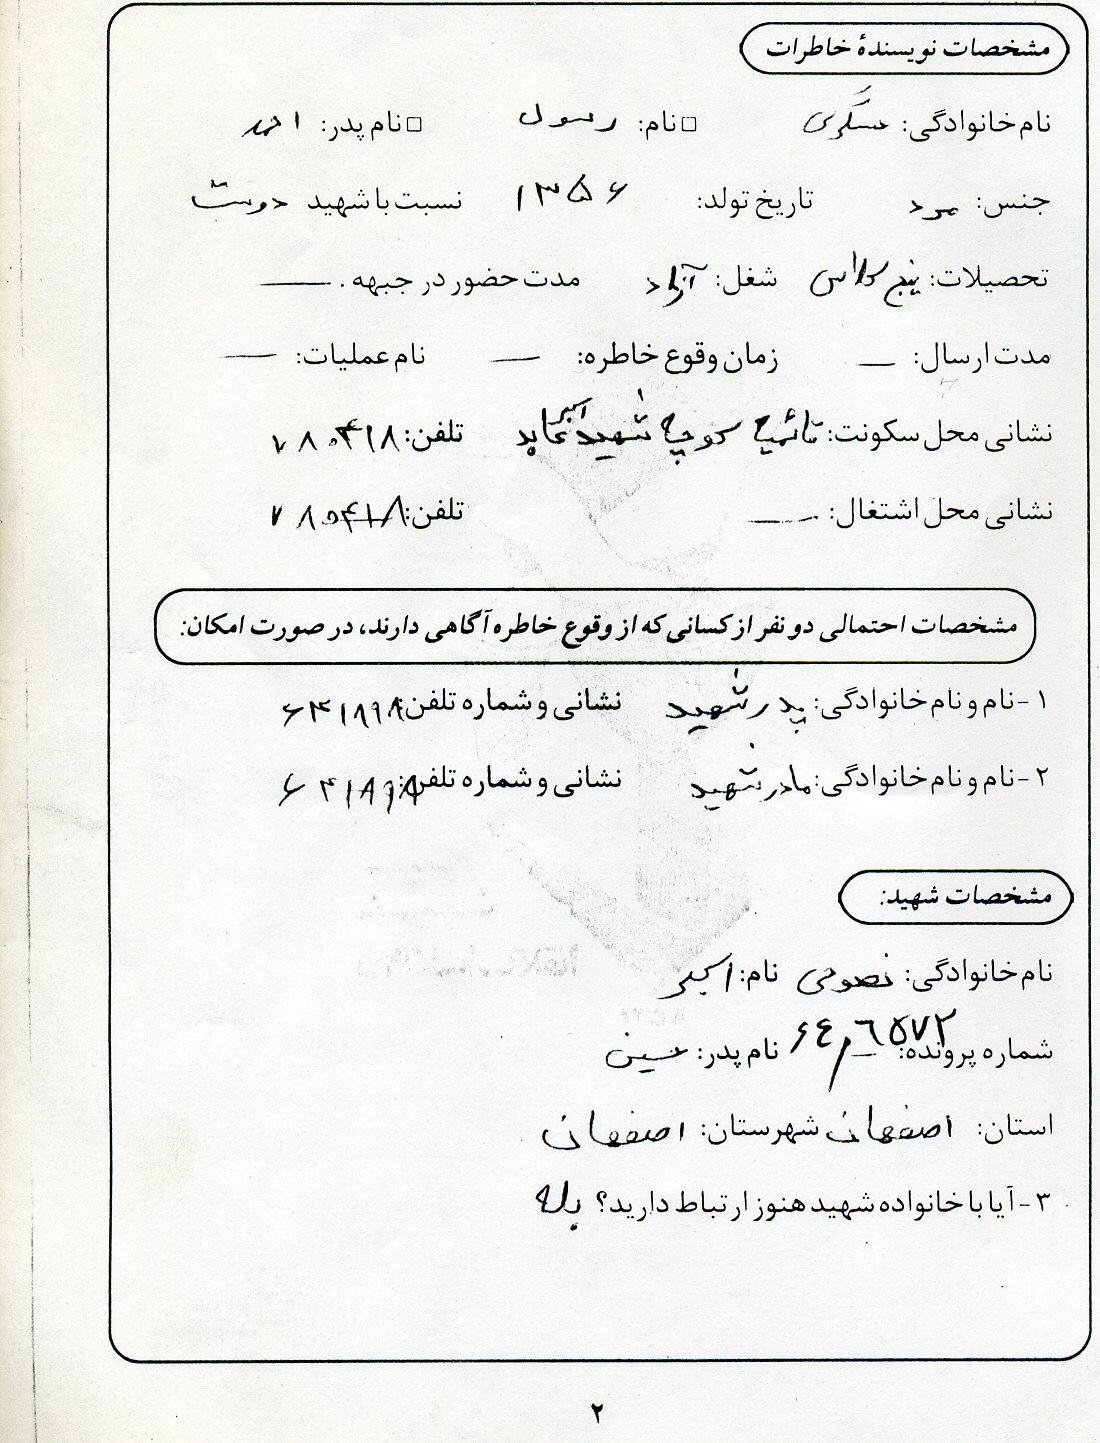 مشخصات نویسندهٔ خاطرات
نام خانوادگی: عسگری □ نام: رسول □ نام پدر: احمد
جنس: مرد تاریخ تولد: ۱۳۵۶ نسبت با شهید دوست
تحصیلات: پنج کلاس شغل: آزاد مدت حضور در جبهه. —
مدت ارسال: — زمان وقوع خاطره: — نام عملیات: —
نشانی محل سکونت: قائمیه کوچه شهید اکبر عابد تلفن: ۷۸۰۴۱۸
نشانی محل اشتغال: — تلفن: ۷۸۰۴۱۸
مشخصات احتمالی دو نفر از کسانی که از وقوع خاطره آگاهی دارند، در صورت امکان:
۱- نام و نام خانوادگی: پدر شهید نشانی و شماره تلفن:
۲- نام و نام خانوادگی: مادر شهید نشانی و شماره تلفن:
مشخصات شهید:
نام خانوادگی: نصوحی نام: اکبر
شماره پرونده: نام پدر: حسین
استان: اصفهان شهرستان: اصفهان
۳- آیا با خانواده شهید هنوز ارتباط دارید؟ بله
۲